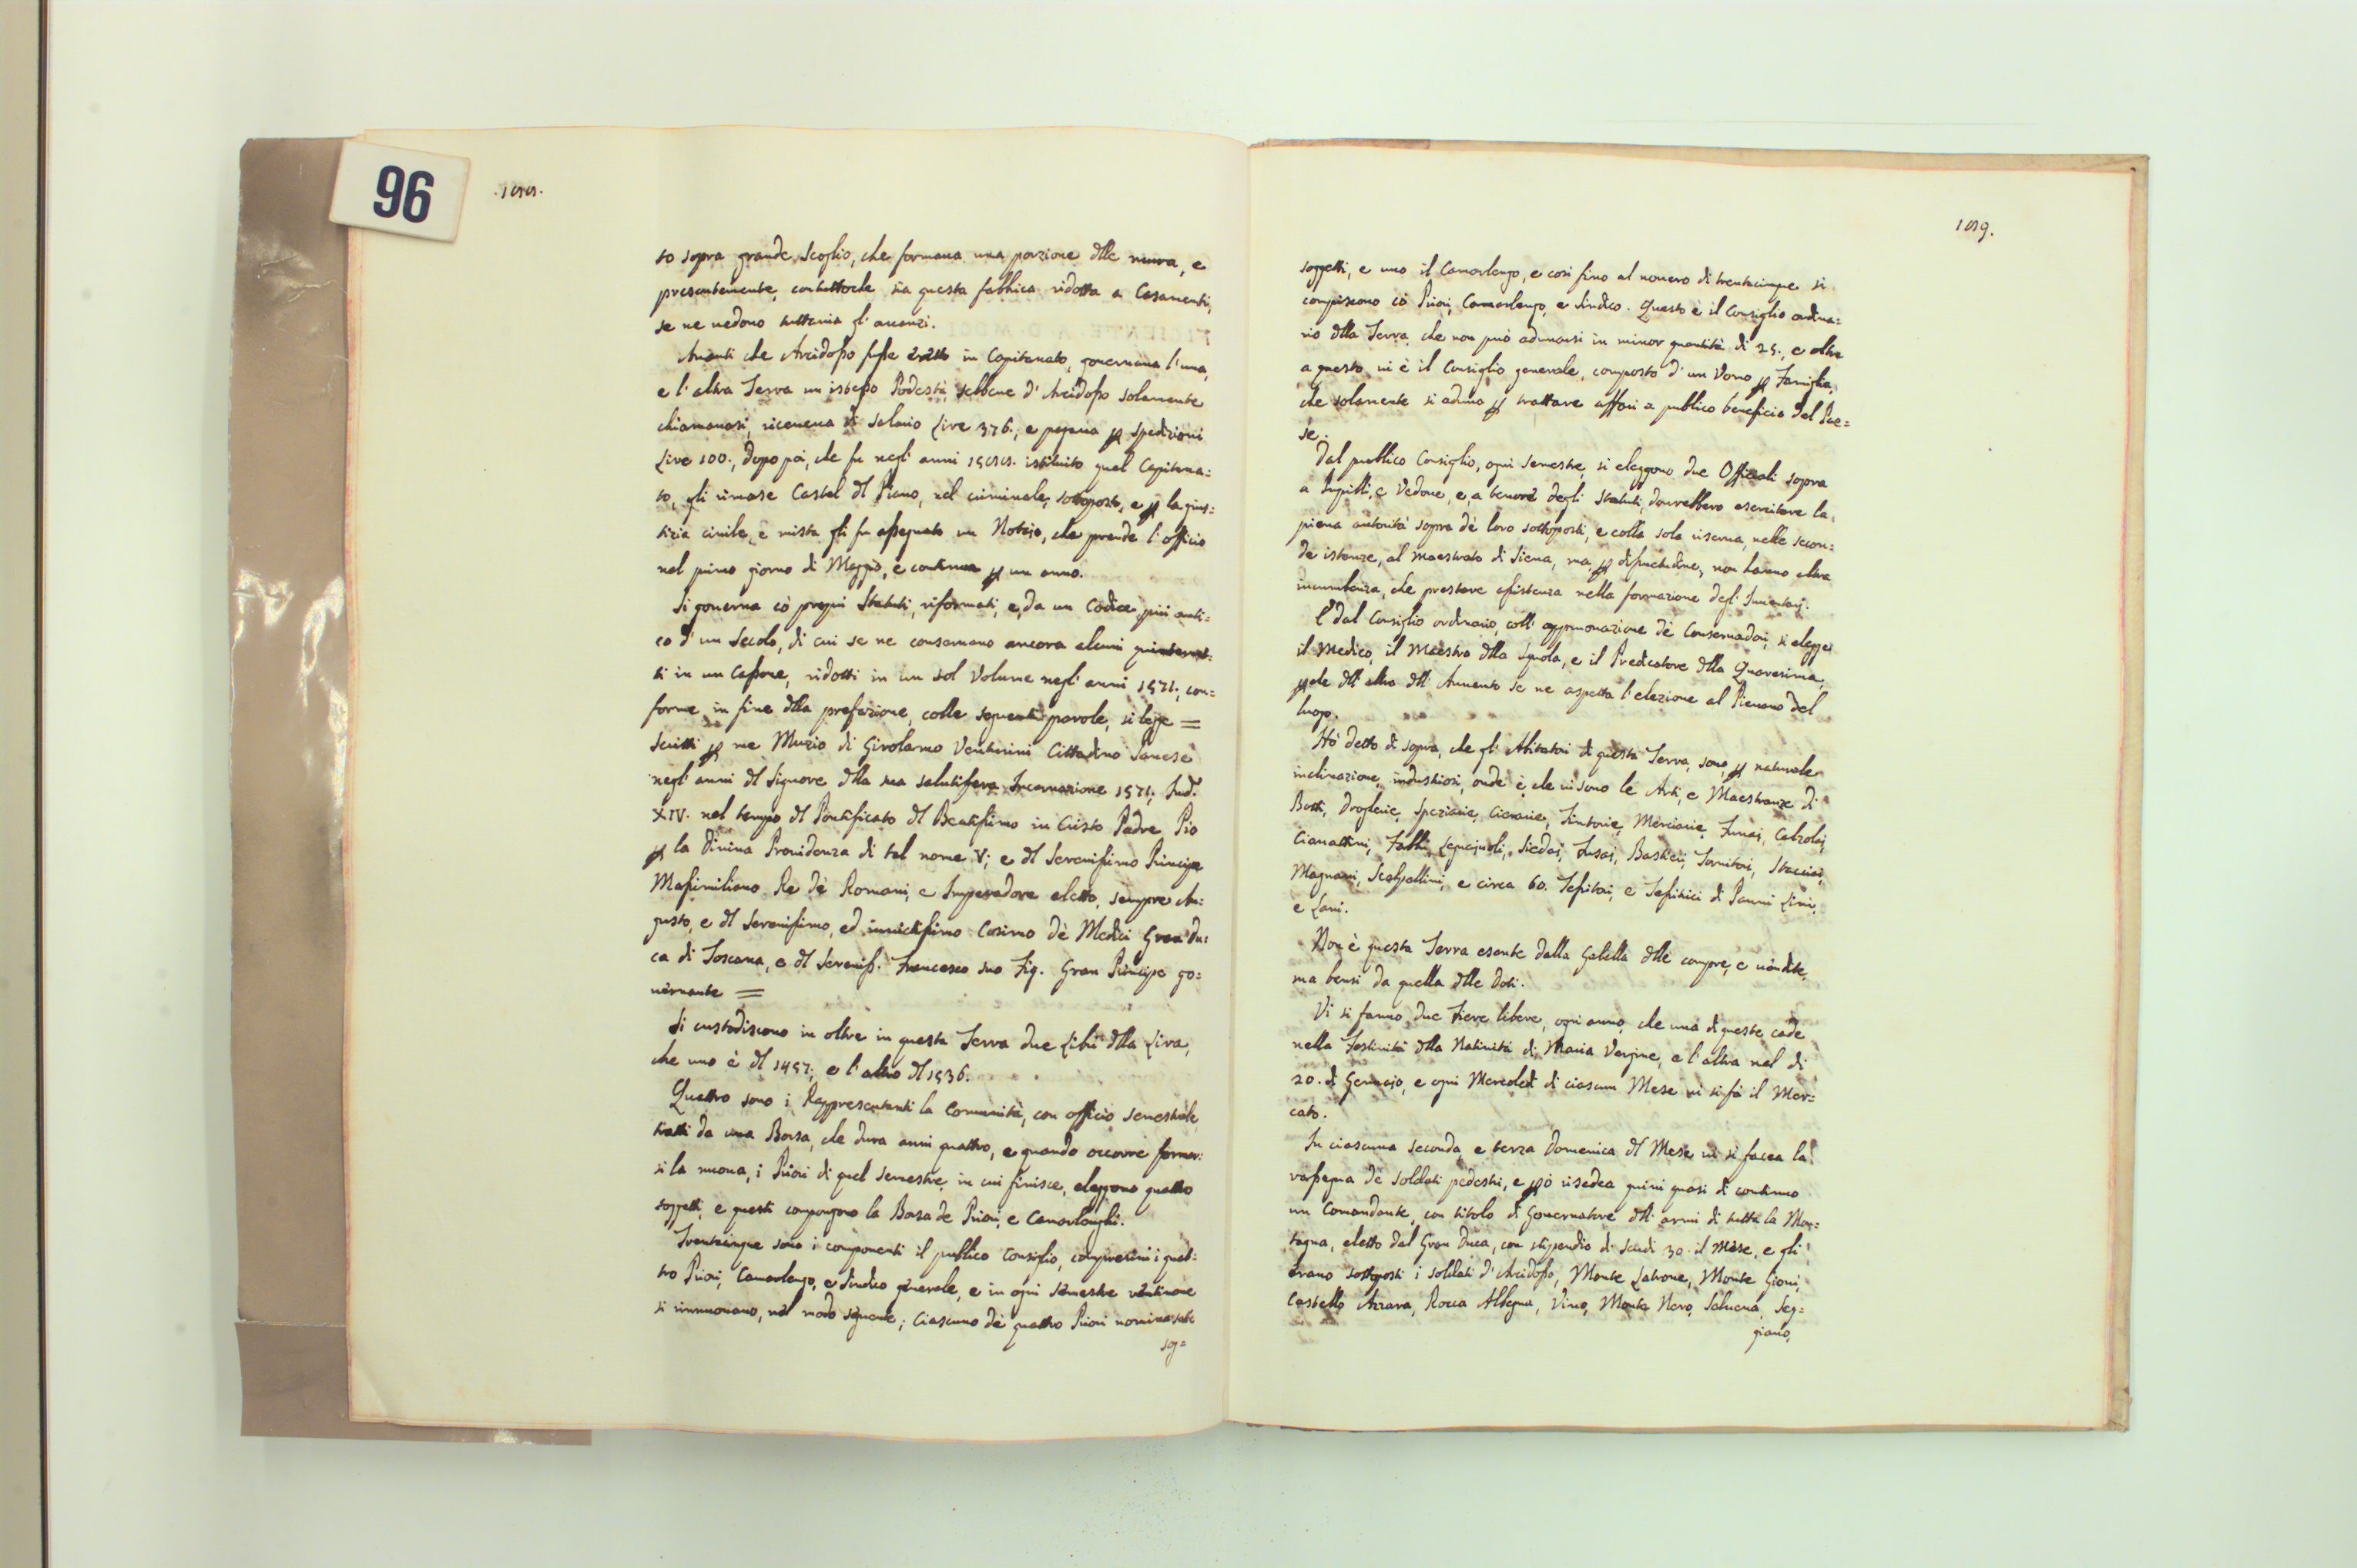 96
.188.
to sopra grande scoglio, che formaua una porzione dlle mura, e
presentemente, contuttoche sia questa fabbrica ridotta a Casamenti,
se ne uedono tuttauia gl' auanzi.
Auanti che Arcidosso fusse eretto in Capitanato, gouernaua l'una,
e l'altra Terra un istesso Podestà, sebbene d'Arcidosso solamente
chiamauasi, riceueua di salario Lire 376., e pagaua p spedizioni
Lire 100., dopo poi, che fu negl' anni 1588. istituito quel Capitana=
to, gli rimase Castel dl Piano, nel criminale, sottoposto, e p la gius=
tizia ciuile, e mista gli fu assegnato un Notajo, che prende l'officio
nel primo giorno di Maggio, e continua p un anno.
Si gouerna cò proprj Statuti, riformati, e, da un Codice più anti=
co d'un Secolo, di cui se ne conseruano ancora alcuni quinternet=
ti in un Cassone, ridotti in un sol Volume negl' anni 1571., con=
forme in fine dlla prefazione, colle seguenti parole, si legge =
Scritti p me Muzio di Girolamo Venturini Cittadino Sanese
negl' anni dl Signore dlla sua salutifera Incarnazione 1571, Ind.
XIV. nel tempo dl Pontificato dl Beatissimo in Cristo Padre Pio
p la Diuina Prouidenza di tal nome V; e dl Serenissimo Principe
Massimiliano Re dè Romani, e Imperadore eletto, sempre Au=
gusto, e dl Serenissimo, ed inuictissimo Cosimo dè Medici Gran Du=
ca di Toscana, e dl Sereniss. Francesco suo Fig. Gran Principe go=
uernante =
Si custodiscono in oltre in questa Terra due Libri dlla Lira,
che uno è dl 1457., e l'altro dl 1536.
Quattro sono i Rappresentanti la Comunità, con officio semestrale,
tratti da una Borsa, che dura anni quattro, e quando occorre formar=
si la nuoua, i Priori di quel semestre, in cui finisce, eleggono quattro
soggetti, e questi compongono la Borsa de Priori, e Camarlenghi.
Trentacinque sono i componenti il publico Consiglio, compresiui i quat=
tro Priori, Camarlengo, e Sindico generale, e in ogni semestre uentinoue
si rinnuouano, nel modo seguente; Ciascuno dè quattro Priori nomina sette
sog=
189.
soggetti, e uno il Camarlengo, e così fino al nouero di trentacinque si
compiscono cò Priori, Camarlengo, e Sindico. Questo è il Consiglio ordina=
rio dlla Terra, che non può adunarsi in minor quantità di 25., e oltre
a questo, ui è il Consiglio generale, composto d'un Vomo p Famiglia,
che solamente si aduna p trattare affari a publico beneficio del Pae=
se.
Dal publico Consiglio, ogni semestre, si eleggono due Offiziali sopra
a Pupilli, e Vedoue, e, a tenore degli Statuti, dourebbero esercitare la
piena autorità sopra dè loro sottoposti, e colla sola riserua, nelle secon=
de istanze, al Maestrato di Siena, ma, p dissuetudine, non hanno altra
incumbenza, che prestare assistenza nella formazione degl' Inuentarj.
E dal Consiglio ordinario, coll' approuazione dè Conseruadori, si elegge
il Medico, il Maestro dlla Scuola, e il Predicatore dlla Quaresima,
pche dll' altro dll' Auuento se ne aspetta l'elezione al Pieuano del
luogo.
Hò detto di sopra, che gl' Abitatori di questa Terra, sono, p naturale
inclinazione, industriosi, onde è, che ui sono le Arti, e Maestranze di
Botti, Drogherie, Speziarie, Cierarie, Tintorie, Merciarie, Funai, Calzolai,
Ciauattini, Fabbri, Legnajuoli, Sediai, Fusai, Bastieri, Tornitori, Stacciai,
Magnani, Scalpellini, e circa 60. Tessitori, e Tessitrici di Panni Lini,
e Lani.
Non è questa Terra esente dalla Gabella dlle compre, e uendite,
ma bensì da quella dlle Doti.
Vi si fanno, due Fiere libere, ogni anno, che una di queste cade
nella Festiuità dlla Natiuità di Maria Vergine, e l'altra nel dì
20. di Gennajo, e ogni Mercoledì di ciascun Mese ui si fà il Mer=
cato.
In ciascuna seconda, e terza Domenica dl Mese ui si facea la
rassegna dè soldati pedestri, e pò risedea quiui quasi di continuo
un Comandante, con titolo di Gouernatore dll' armi di tutta la Mon=
tagna, eletto dal Gran Duca, con stipendio di Scudi 30. il Mese, e gli
erano sottoposti i soldati d'Arcidosso, Monte Latrone, Monte Gioui,
Castello Azzara, Rocca Albegna, Viuo, Monte Nero, Saluena, Seg=
giano,